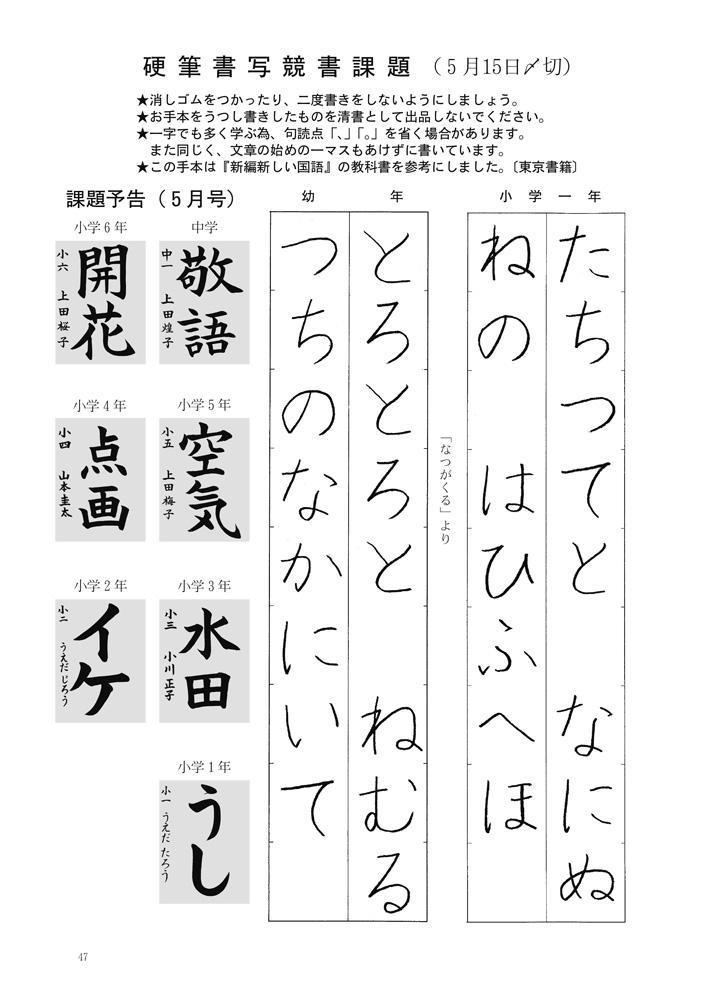 硬筆書写競書課題（5月15日〆切）
★消しゴムをつかったり、二度書きをしないようにしましょう。
★お手本をうつし書きしたものを清書として出品しないでください。
★一字でも多く学ぶ為、句読点「、」「。」を省く場合があります。
また同じく、文章の始めの一マスもあけずに書いています。
★この手本は『新編新しい国語』の教科書を参考にしました。〔東京書籍〕
小学一年
たちつてと なにぬ
ねの はひふへほ
幼年
とろとろと ねむる
つちのなかにいて
「なつがくる」より
課題予告（5月号）
中学
敬語
中一 上田煌子
小学6年
開花
小六 上田桜子
小学5年
空気
小五 上田梅子
小学4年
点画
小四 山本圭太
小学3年
水田
小三 小川正子
小学2年
イケ
小二 うえだじろう
小学1年
うし
小一 うえだたろう
47